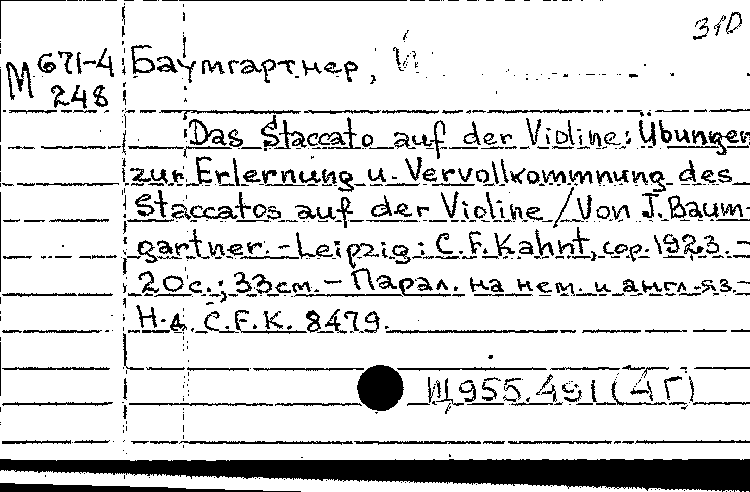 310
М 671-4 Баумгартнер, Й
248
Das Staccato auf der Violine: Übungen
zur Erlernung u. Vervollkommnung des
Staccatos auf der Violine / Von J. Baum-
gartner. - Leipzig: C.F. Kahnt, cop. 1923. -
20 с.; 33 см. - Парал. на нем. и англ. яз. -
Н.д. C.F.K. 8479.
Щ955.491 (4Г)